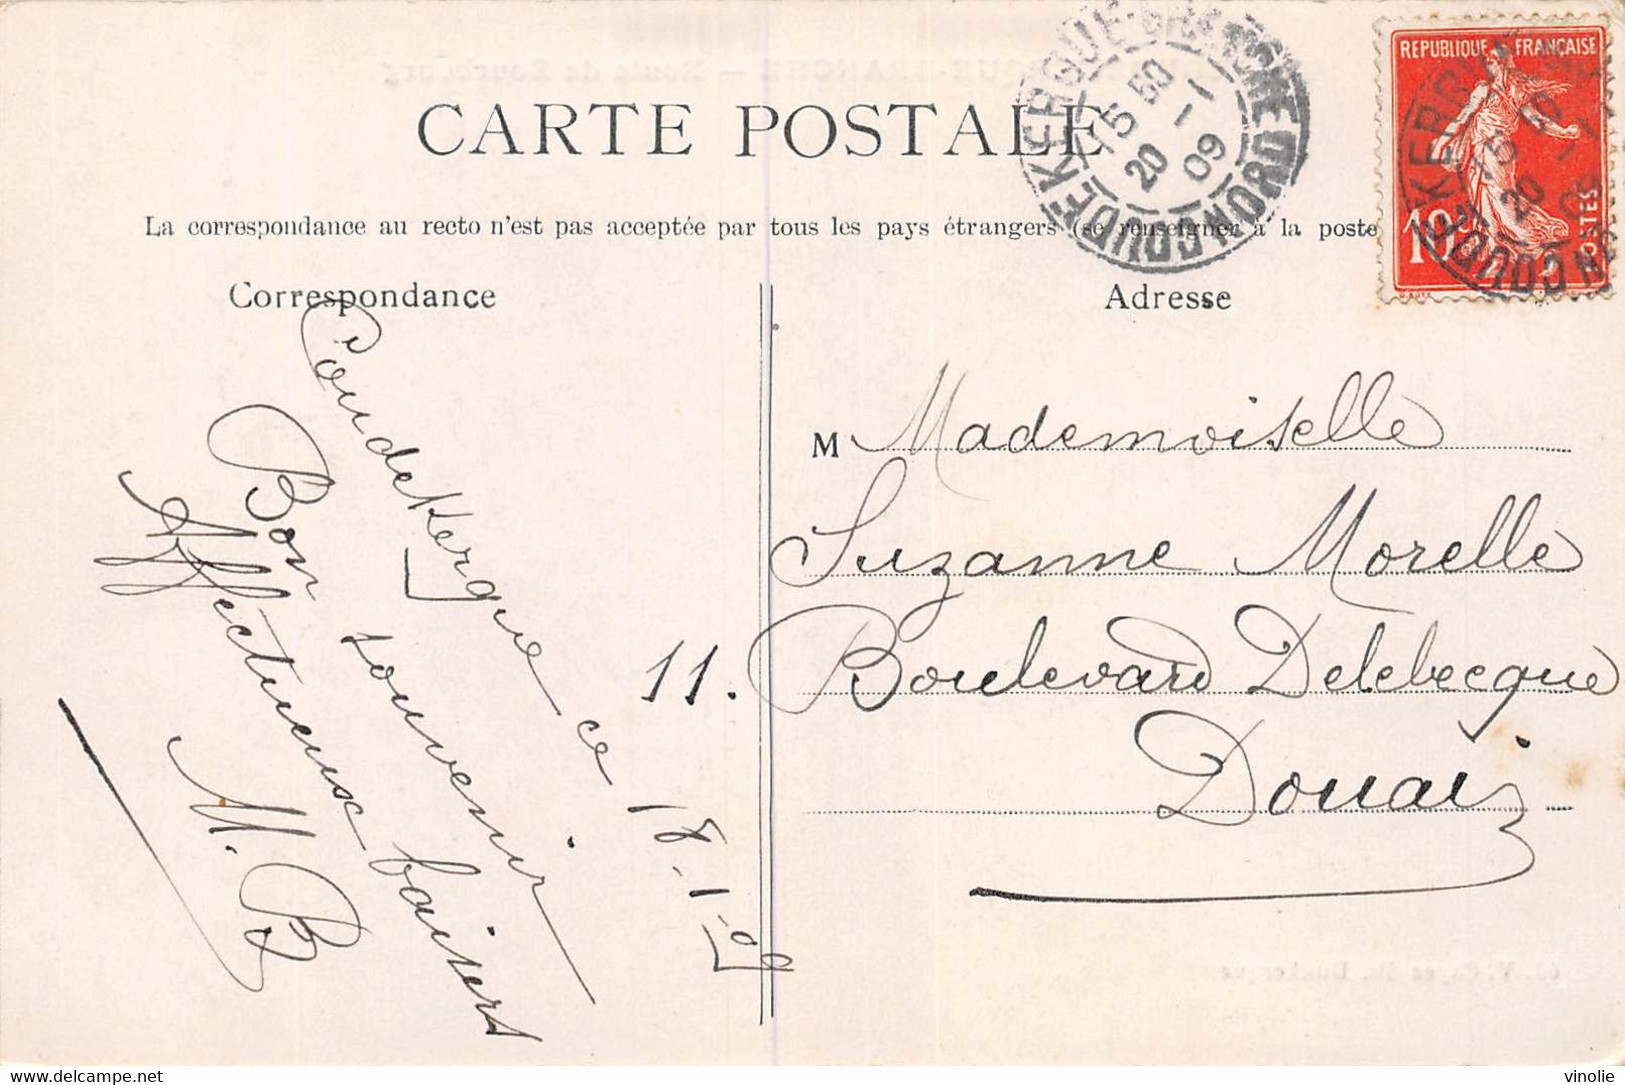 CARTE POSTALE
La correspondance au recto n'est pas acceptée par tous les pays étrangers (se renseigner à la poste
Correspondance
Coudekerque ce 18-1-09
Bon souvenir
Affectueux baisers
M. B
Adresse
M Mademoiselle
Suzanne Morelle
11. Boulevard Delebecque
Douai
COUDEKERQUE-BRANCHE NORD
15 50
20 - 1
09
REPUBLIQUE FRANÇAISE
10c
POSTES
vinolie